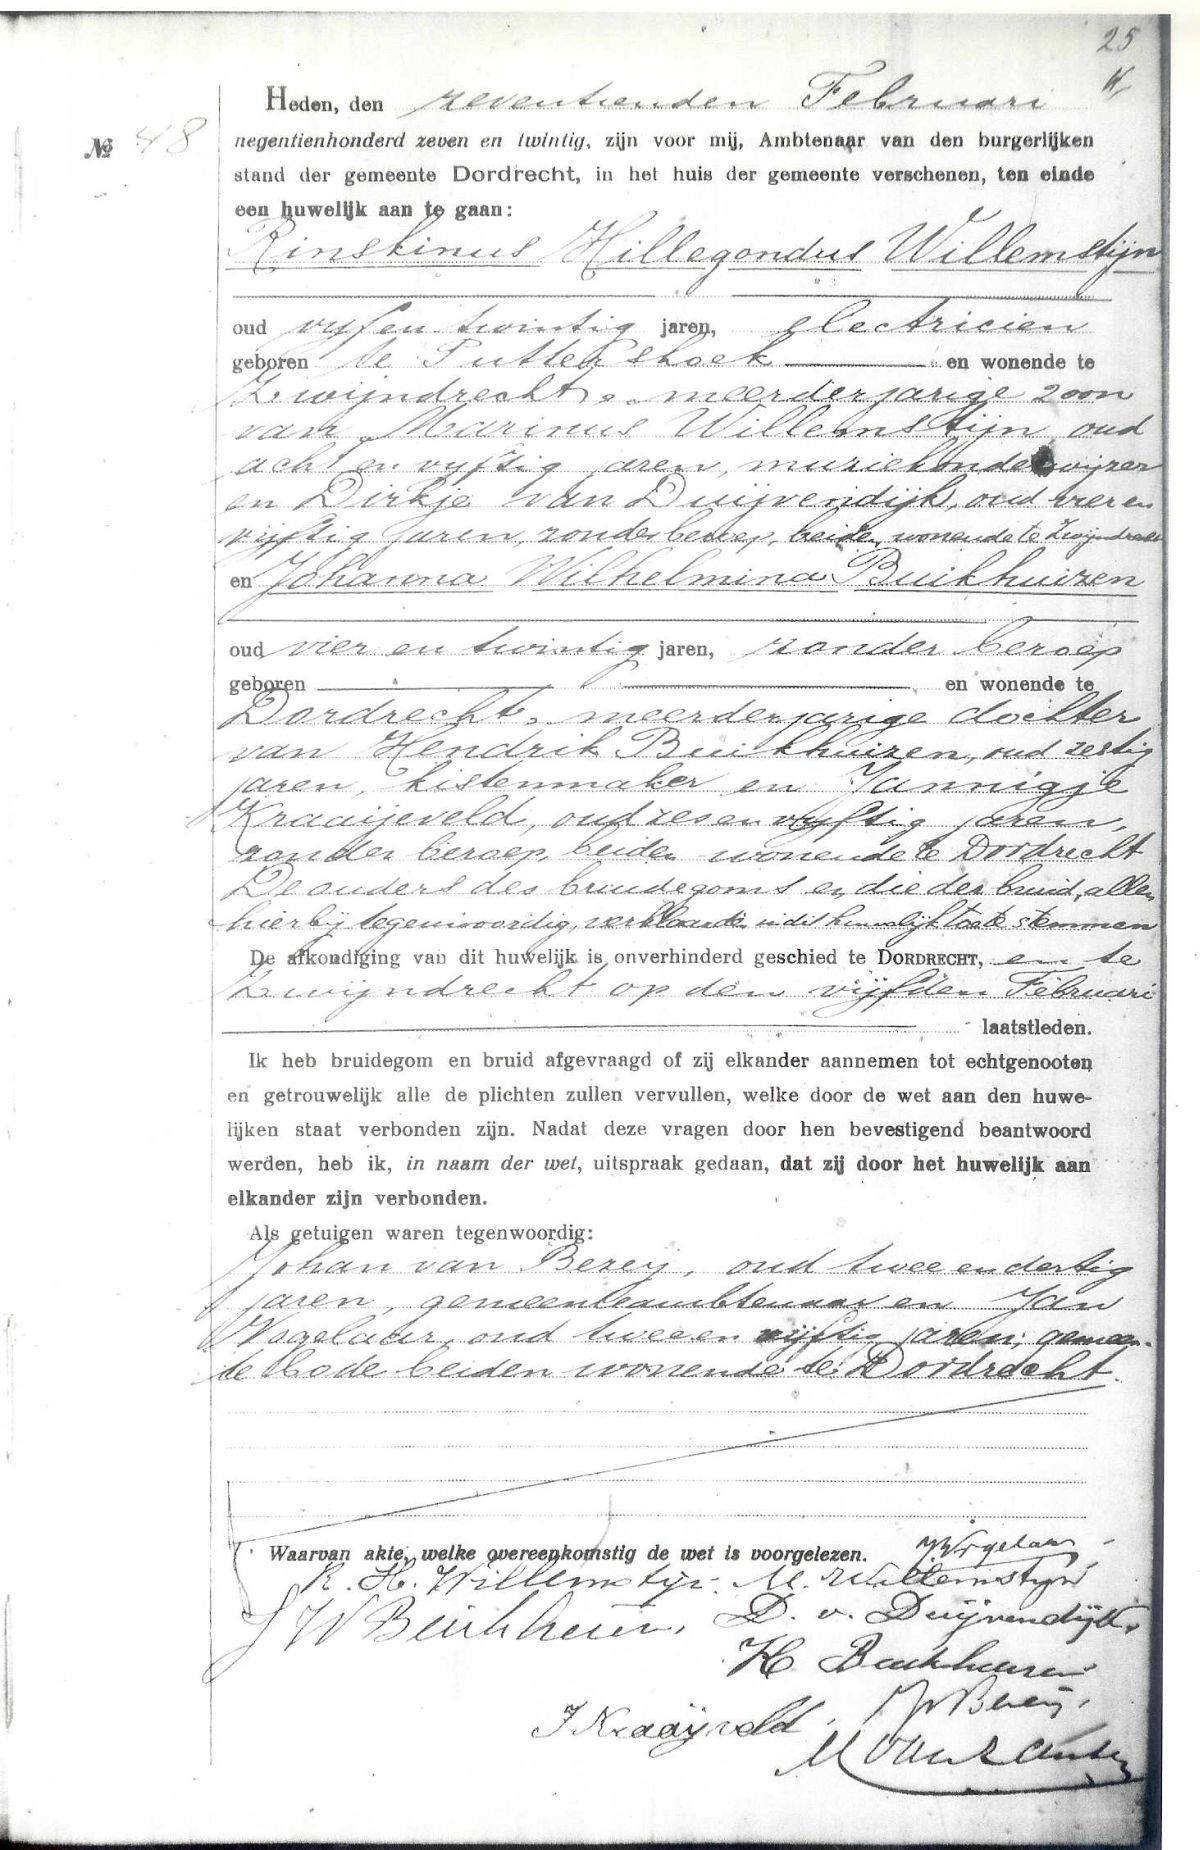 25
Heden, den zeventienden Februari
№ 48
negentienhonderd zeven en twintig, zijn voor mij, Ambtenaar van den burgerlijken
stand der gemeente Dordrecht, in het huis der gemeente verschenen, ten einde
een huwelijk aan te gaan:
Rinskinus Hillegondus Willemstijn
oud vijf en twintig jaren, electricien
geboren te Puttershoek en wonende te
Zwijndrecht, meerderjarige zoon
van Marinus Willemstijn, oud
acht en vijftig jaren, muziekonderwijzer
en Dirkje van Duijvendijk, oud vier en
vijftig jaren, zonder beroep, beiden wonende te Zwijndrecht
en Johanna Wilhelmina Buikhuizen
oud vier en twintig jaren, zonder beroep
geboren en wonende te
Dordrecht, meerderjarige dochter
van Hendrik Buikhuizen, oud zestig
jaren, kistenmaker en Jannigje
Kraaijeveld, oud zes en vijftig jaren,
zonder beroep, beiden wonende te Dordrecht
De ouders des bruidegoms en die der bruid, allen
hierbij tegenwoordig, verklaarden in dit huwelijk toe te stemmen
De afkondiging van dit huwelijk is onverhinderd geschied te DORDRECHT, en te
Zwijndrecht op den vijfden Februari
laatstleden.
Ik heb bruidegom en bruid afgevraagd of zij elkander aannemen tot echtgenooten
en getrouwelijk alle de plichten zullen vervullen, welke door de wet aan den huwe-
lijken staat verbonden zijn. Nadat deze vragen door hen bevestigend beantwoord
werden, heb ik, in naam der wet, uitspraak gedaan, dat zij door het huwelijk aan
elkander zijn verbonden.
Als getuigen waren tegenwoordig:
Johan van Berey, oud twee en dertig
jaren, gemeenteambtenaar en Jan
Vogelaar, oud twee en vijftig jaren, gemeen-
te bode beiden wonende te Dordrecht.
Waarvan akte, welke overeenkomstig de wet is voorgelezen. J Vogelaar
R. H. Willemstijn. M. Willemstijn
J W Buikhuizen. D. v. Duijvendijk.
H Buikhuizen
J v Berey
J Kraaijveld.